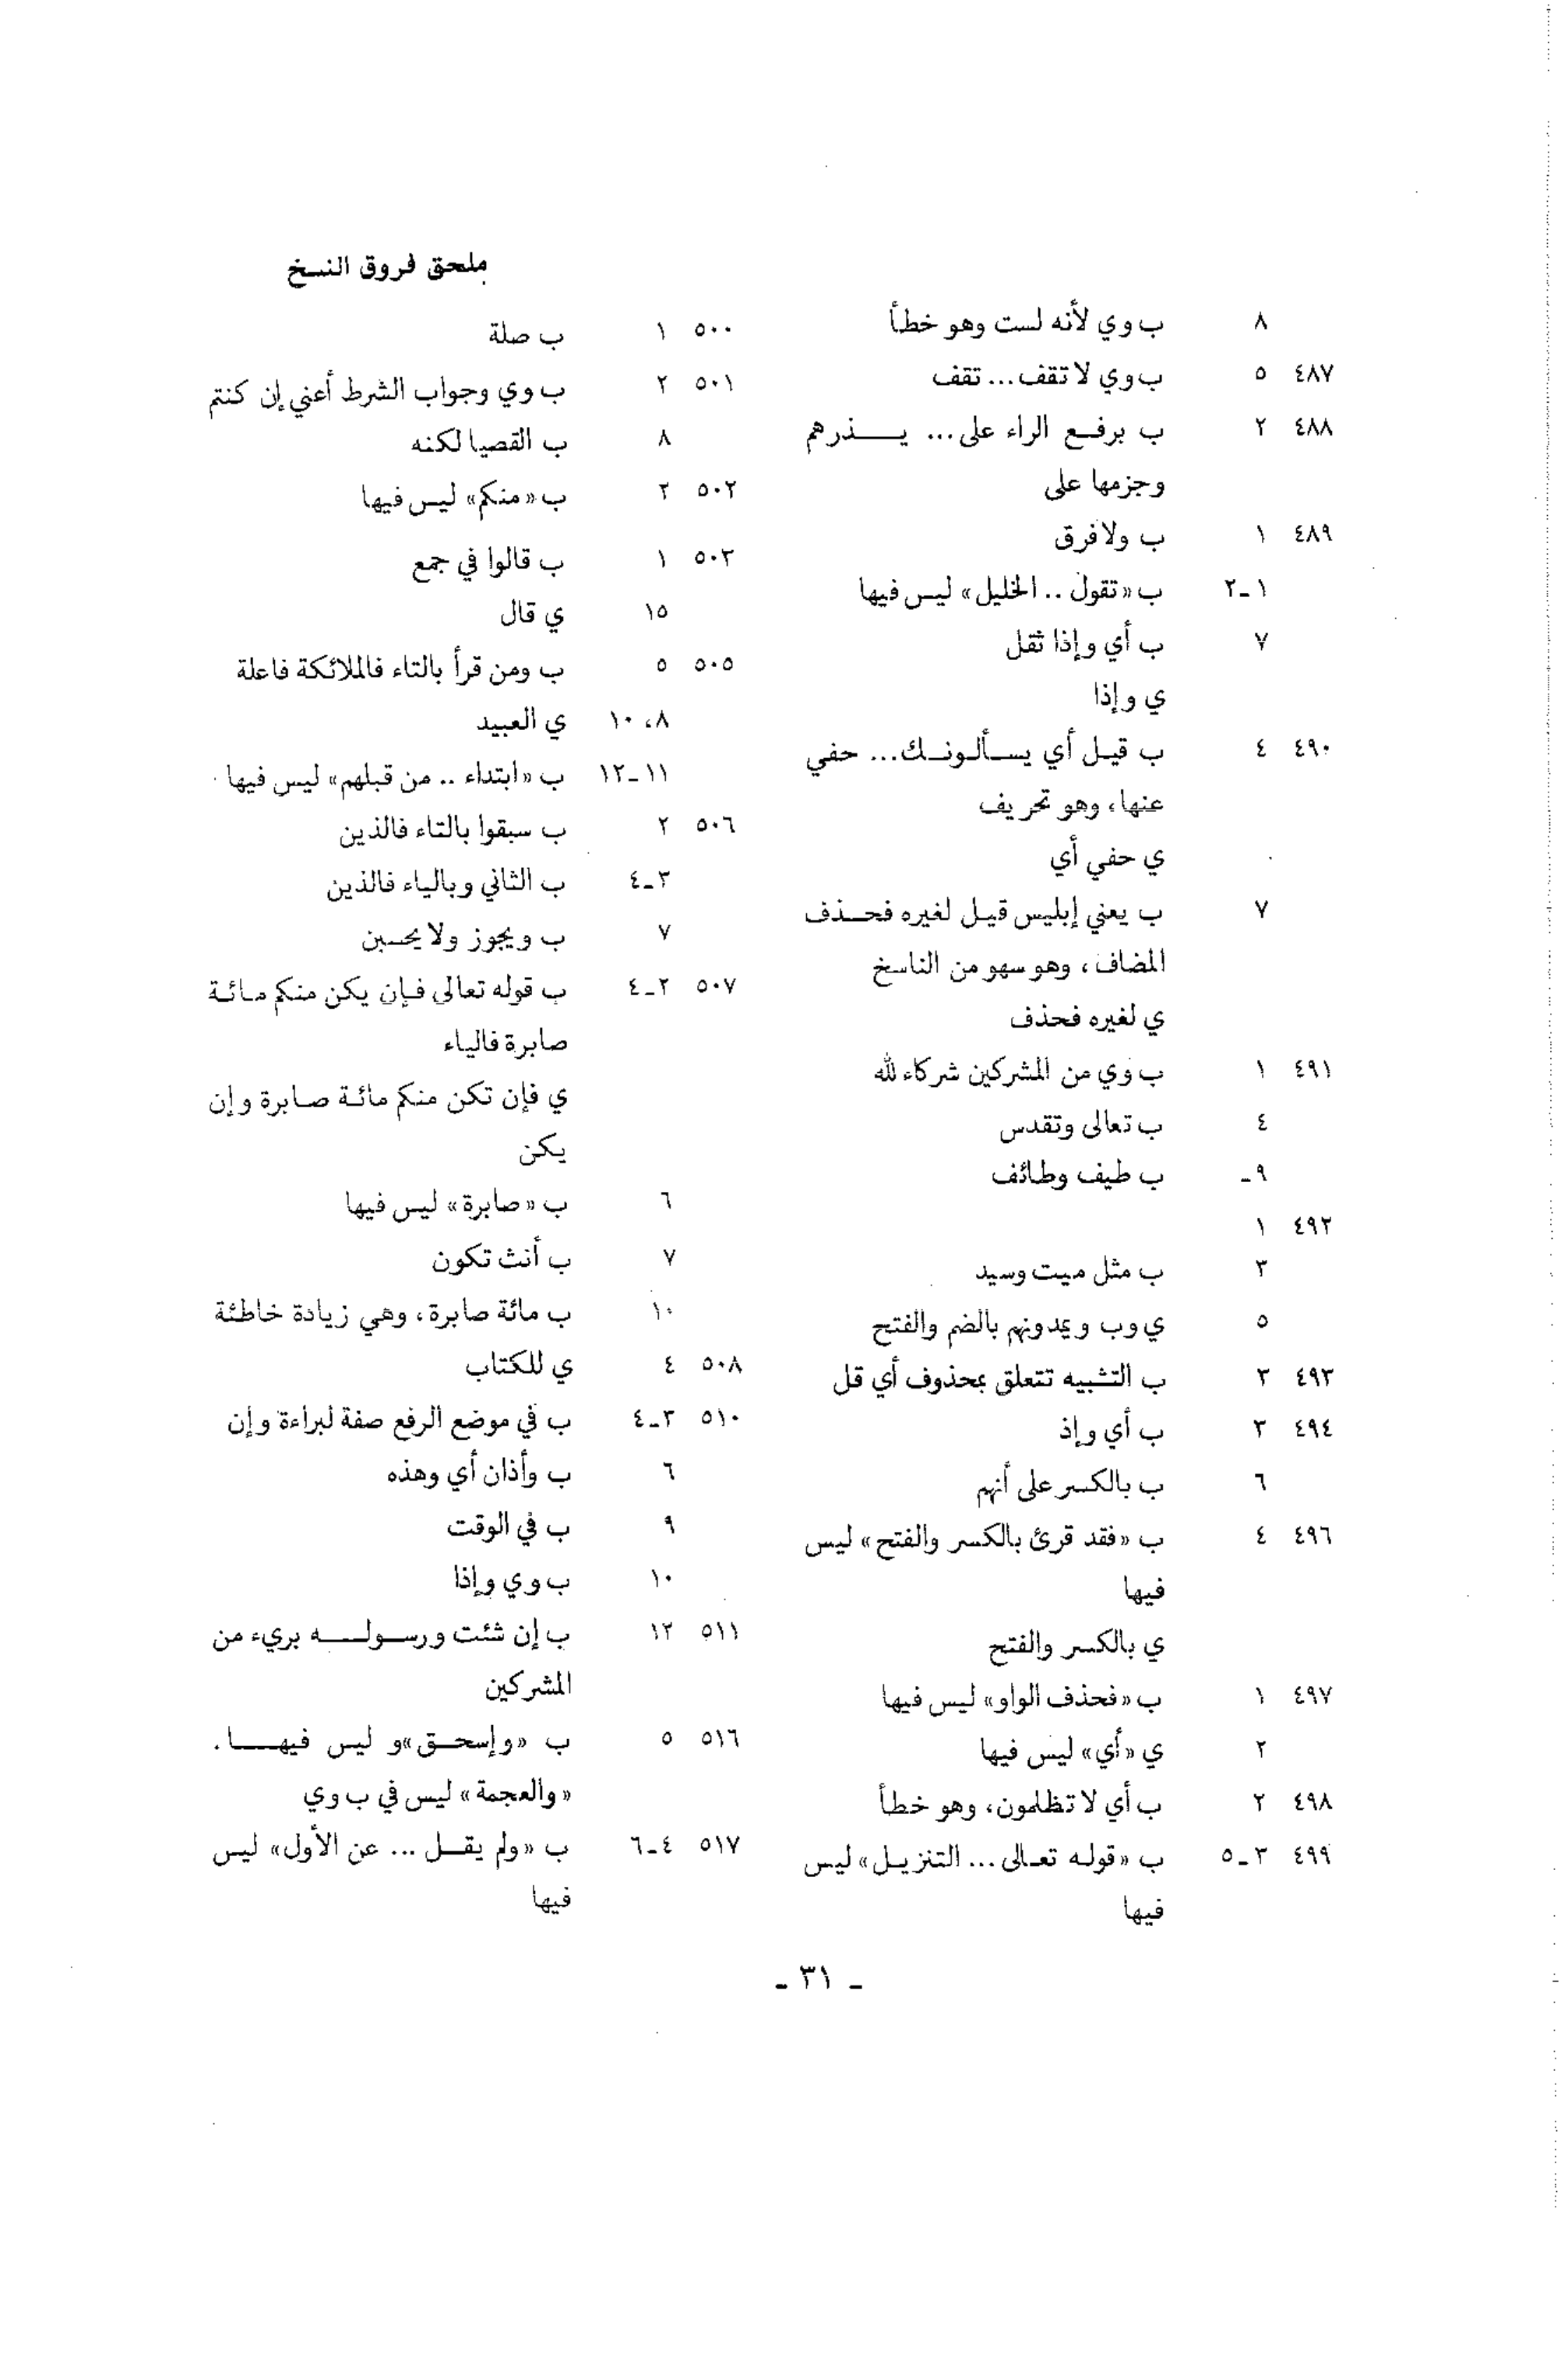 ملحق فروق النسخ
٨ ب وي لأنه لست وهو خطأ
٤٨٧ ٥ ب وي لا تقف... تقف
٤٨٨ ٢ ب برفع الراء على... يذرهم
وجزمها على
٤٨٩ ١ ب ولا فرق
١-٢ ب «تقول .. الخليل» ليس فيها
٧ ب أي وإذا ثقل
ي وإذا
٤٩٠ ٤ ب قيل أي يسألونك... حفي
عنها، وهو تحريف
ي حفي أي
٧ ب يعني إبليس قيل لغيره فحذف
المضاف، وهو سهو من الناسخ
ي لغيره فحذف
٤٩١ ١ ب وي من المشركين شركاء لله
٤ ب تعالى وتقدس
٩- ب طيف وطائف
٤٩٢ ١
٣ ب مثل ميت وسيد
٥ ي وب ويمدونهم بالضم والفتح
٤٩٣ ٣ ب التشبيه تتعلق بمحذوف أي قل
٤٩٤ ٣ ب أي وإذ
٦ ب بالكسر على أنهم
٤٩٦ ٤ ب «فقد قرئ بالكسر والفتح» ليس
فيها
ي بالكسر والفتح
٤٩٧ ١ ب «فحذف الواو» ليس فيها
٢ ي «أي» ليس فيها
٤٩٨ ٢ ب أي لا تظلمون، وهو خطأ
٤٩٩ ٣-٥ ب «قوله تعالى... التنزيل» ليس
فيها
٥٠٠ ١ ب صلة
٥٠١ ٢ ب وي وجواب الشرط أعني إن كنتم
٨ ب القصيا لكنه
٥٠٢ ٢ ب «منكم» ليس فيها
٥٠٣ ١ ب قالوا في جمع
١٥ ي قال
٥٠٥ ٥ ب ومن قرأ بالتاء فالملائكة فاعلة
٨، ١٠ ي العبيد
١١-١٢ ب «ابتداء .. من قبلهم» ليس فيها
٥٠٦ ٢ ب سبقوا بالتاء فالذين
٣-٤ ب الثاني وبالياء فالذين
٧ ب ويجوز ولا يحسبن
٥٠٧ ٢-٤ ب قوله تعالى فإن يكن منكم مائة
صابرة فالياء
ي فإن تكن منكم مائة صابرة وإن
يكن
٦ ب «صابرة» ليس فيها
٧ ب أنث تكون
١٠ ب مائة صابرة، وهي زيادة خاطئة
٥٠٨ ٤ ي للكتاب
٥١٠ ٣-٤ ب في موضع الرفع صفة لبراءة وإن
٦ ب وأذان أي وهذه
٩ ب في الوقت
١٠ ب وي وإذا
٥١١ ١٢ ب إن شئت ورسوله بريء من
المشركين
٥١٦ ٥ ب «وإسحق»و ليس فيها.
«والعجمة» ليس في ب وي
٥١٧ ٤-٦ ب «ولم يقل ... عن الأول» ليس
فيها
- ٣١ -